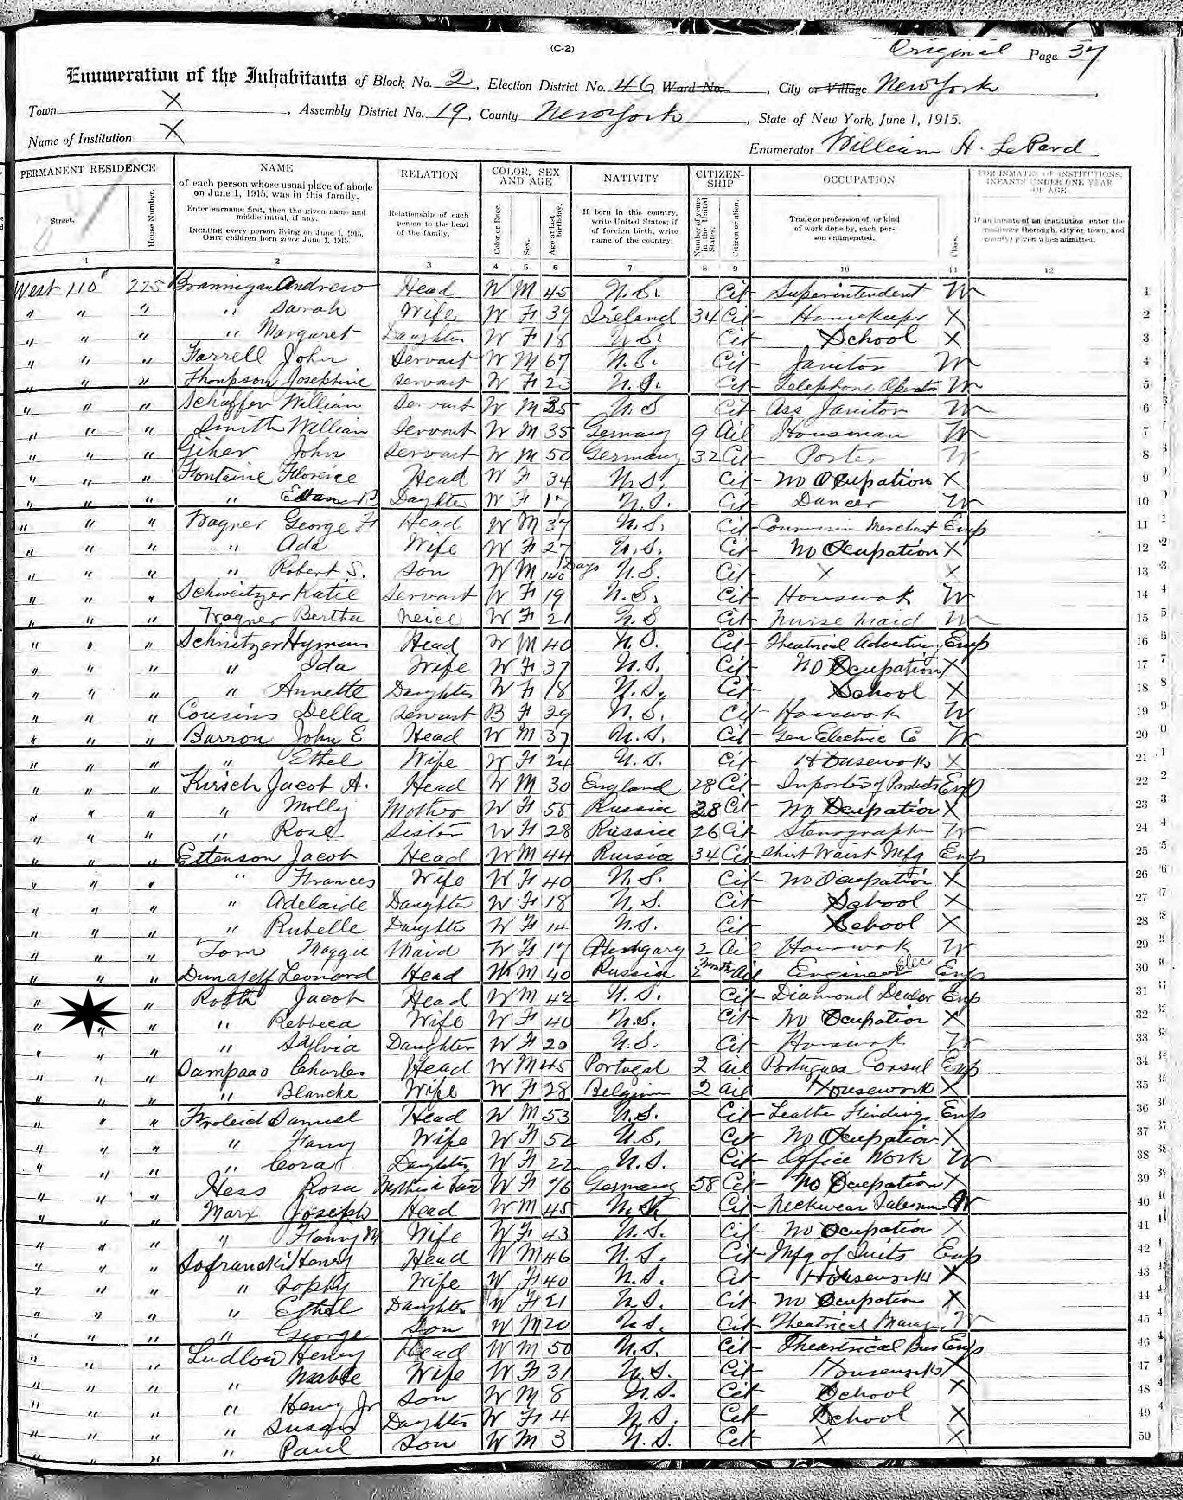 (C-2)
Original Page 37
Enumeration of the Inhabitants of Block No. 2, Election District No. 46 Ward No. , City or Village New York
Town X , Assembly District No. 19, County New York , State of New York, June 1, 1915.
Name of Institution X Enumerator William H. LePard
PERMANENT RESIDENCE NAME RELATION COLOR, SEX AND AGE NATIVITY CITIZENSHIP OCCUPATION FOR INMATES OF INSTITUTIONS, INFANTS UNDER ONE YEAR OF AGE
Street. House Number. of each person whose usual place of abode on June 1, 1915, was in this family. Enter surname first, then the given name and middle initial, if any. Include every person living on June 1, 1915. Omit children born since June 1, 1915. Relationship of each person to the head of the family. Color or Race. Sex. Age at last birthday. If born in this country, write United States; if of foreign birth, write name of the country. Number of years in the United States. Citizen or alien. Trade or profession of, or kind of work done by, each person enumerated. Class. If an inmate of an institution enter the
1 2 3 4 5 6 7 8 9 10 11 12
West 110" 225 Brannigan Andrew Head W M 45 U.S. Cit Superintendent W 1
" " " " Sarah Wife W F 39 Ireland 34 Cit Housekeeper X 2
" " " " Margaret Daughter W F 18 U.S. Cit School X 3
" " " Farrell John Servant W M 67 U.S. Cit Janitor W 4
" " " Thompson Josephine Servant W F 23 U.S. Cit Telephone Operator W 5
" " " Schaffer William Servant W M 35 U.S Cit Ass Janitor W 6
" " " Smith William Servant W M 35 Germany 9 Ail Houseman W 7
" " " Giher John Servant W M 50 Germany 32 Cit Porter W 8
" " " Fontaine Florence Head W F 34 U.S. Cit No Ocupation X 9
" " " " Daughter W F 17 U.S. Cit Dancer W 10
" " " Wagner George F Head W M 37 U.S. Cit Commission Merchant Emp 11
" " " " Ada Wife W F 27 U.S. Cit No Ocupation X 12
" " " " Robert S. Son W M Days U.S. Cit X X 13
" " " Schweitzer Katie Servant W F 19 U.S. Cit Housework W 14
" " " Wagner Bertha Neice W F 21 U.S Cit Nurse Maid W 15
" " " Schnitzer Hyman Head W M 40 U.S. Cit Theatrical Advertising Emp 16
" " " " Ida Wife W F 37 U.S. Cit No Ocupation X 17
" " " " Annette Daughter W F 18 U.S. Cit School X 18
" " " Cousins Della Servant B F 29 U.S. Cit Housework W 19
" " " Barron John E Head W M 37 U.S. Cit Gen Electric Co W 20
" " " " Ethel Wife W F 24 U.S. Cit Housework X 21
" " " Kirsch Jacob A. Head W M 30 England 28 Cit Importer of Products Emp 22
" " " " Molly Mother W F 55 Russia 28 Cit No Ocupation X 23
" " " " Rose Sister W F 28 Russia 26 Cit Stenographer W 24
" " " Ettenson Jacob Head W M 44 Russia 34 Cit Shirt Waist Mfg Emp 25
" " " " Frances Wife W F 40 U.S. Cit No Ocupation X 26
" " " " Adelaide Daughter W F 18 U.S. Cit School X 27
" " " " Rubelle Daughter W F 14 U.S. Cit School X 28
" " " Tom Maggie Maid W F 17 Hungary 2 Ail Housework W 29
" " " Dunajeff Leonard Head W M 40 Russia 2 month Ail Engineer Elec Emp 30
" " " Roth Jacob Head W M 42 U.S. Cit Diamond Dealer Emp 31
" " " " Rebbeca Wife W F 40 U.S. Cit No Ocupation X 32
" " " " Sylvia Daughter W F 20 U.S. Cit Housework W 33
" " " Sampaao Charles Head W M 45 Portugal 2 Ail Portugues Consul Emp 34
" " " " Blanche Wife W F 28 Belgium 2 Ail Housework X 35
" " " Froleid Samuel Head W M 53 U.S. Cit Leather Findings Emp 36
" " " " Fanny Wife W F 52 U.S. Cit No Ocupation X 37
" " " " Cora Daughter W F 22 U.S. Cit Office Work W 38
" " " Hess Rosa Mother in Law W F 76 Germany 58 Cit No Ocupation X 39
" " " Marx Joseph Head W M 45 U.S. Cit Neckwear Salesman W 40
" " " " Fanny M Wife W F 43 U.S. Cit No Ocupation X 41
" " " Sofranski Henry Head W M 46 U.S. Cit Mfg of Suits Emp 42
" " " " Sophy Wife W F 40 U.S. Cit Housework X 43
" " " " Ethel Daughter W F 21 U.S. Cit No Ocupation X 44
" " " " George Son W M 20 U.S. Cit Theatrical W 45
" " " Ludlow Henry Head W M 50 U.S. Cit Theartrical Bus Emp 46
" " " " Mable Wife W F 31 U.S. Cit Housework X 47
" " " " Henry Jr Son W M 8 U.S. Cit School X 48
" " " " Susan Daughter W F 4 U.S. Cit School X 49
" " " " Paul Son W M 3 U.S. Cit X X 50